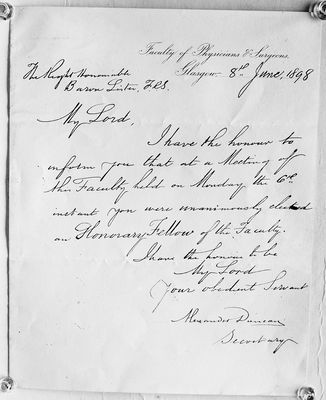 Faculty of Physicians & Surgeons,
Glasgow. 8th June, 1898
The Right Honourable
Baron Lister, F.R.S.
My Lord,
I have the honour to
inform you that at a Meeting of
the Faculty held on Monday the 6th
instant you were unanimously elected
an Honorary Fellow of the Faculty.
I have the honour to be
My Lord
Your obedient Servant
Alexander Duncan
Secretary